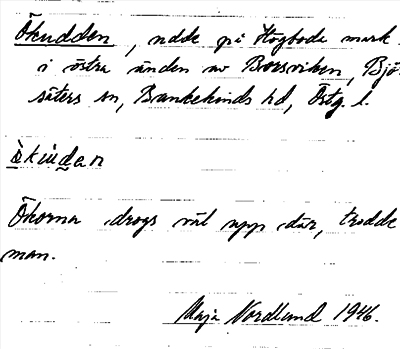 Ökudden, udde på Högboda mark
i östra änden av Borsviken, Bjö
säters sn, Bankekinds hd, Östg. l.
ökùdan
Ökorna drogs väl upp där, trodde
man.
Maja Nordlund 1946.